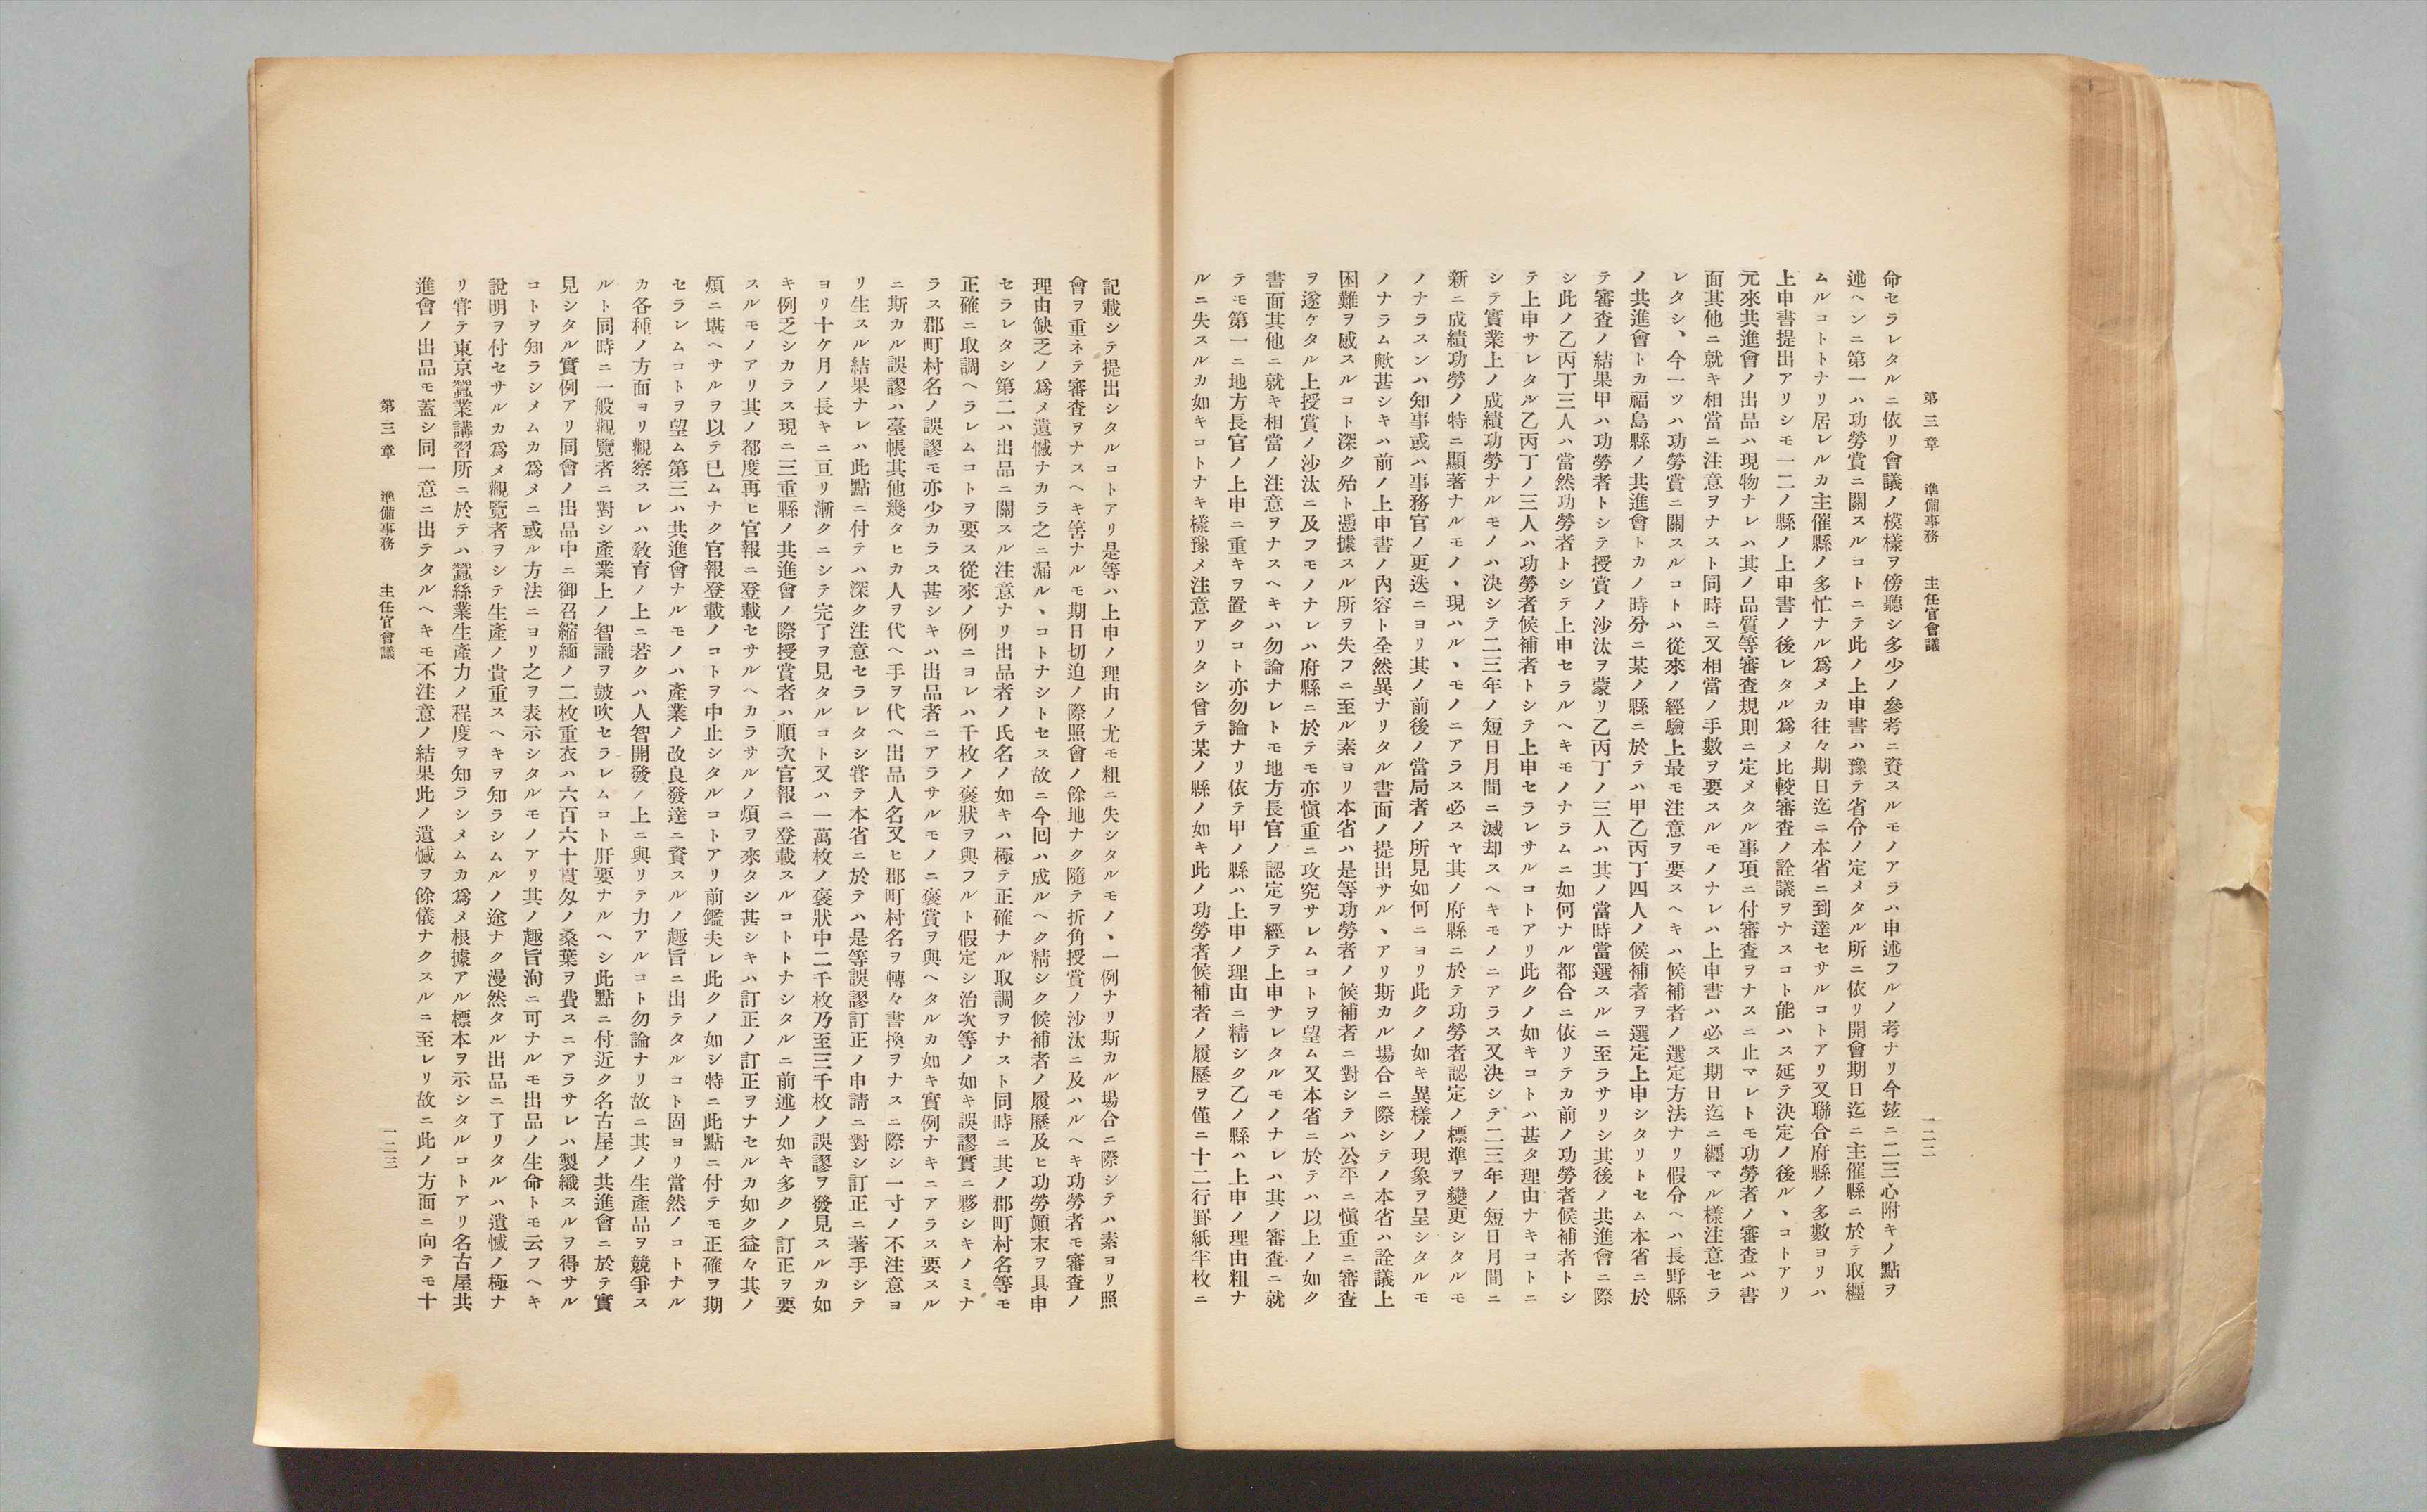 第三章 準備事務 主任官會議
一二二
命セラレタルニ依リ會議ノ模樣ヲ傍聽シ多少ノ參考ニ資スルモノアラハ申述フルノ考ナリ今玆ニ二三心附キノ點ヲ
述ヘンニ第一ハ功勞賞ニ關スルコトニテ此ノ上申書ハ豫テ省令ノ定メタル所ニ依リ開會期日迄ニ主催縣ニ於テ取纒
ムルコトトナリ居レルカ主催縣ノ多忙ナル爲メカ往々期日迄ニ本省ニ到達セサルコトアリ又聯合府縣ノ多數ヨリハ
上申書提出アリシモ一二ノ縣ノ上申書ノ後レタル爲メ比較審査ノ詮議ヲナスコト能ハス延テ決定ノ後ルヽコトアリ
元來共進會ノ出品ハ現物ナレハ其ノ品質等審査規則ニ定メタル事項ニ付審査ヲナスニ止マレトモ功勞者ノ審査ハ書
面其他ニ就キ相當ニ注意ヲナスト同時ニ又相當ノ手數ヲ要スルモノナレハ上申書ハ必ス期日迄ニ纒マル樣注意セラ
レタシ、今一ツハ功勞賞ニ關スルコトハ從來ノ經驗上最モ注意ヲ要スヘキハ候補者ノ選定方法ナリ假令ヘハ長野縣
ノ共進會トカ福島縣ノ共進會トカノ時分ニ某ノ縣ニ於テハ甲乙丙丁四人ノ候補者ヲ選定上申シタリトセム本省ニ於
テ審査ノ結果甲ハ功勞者トシテ授賞ノ沙汰ヲ蒙リ乙丙丁ノ三人ハ其ノ當時當選スルニ至ラサリシ其後ノ共進會ニ際
シ此ノ乙丙丁三人ハ當然功勞者トシテ上申セラルヘキモノナラムニ如何ナル都合ニ依リテカ前ノ功勞者候補者トシ
テ上申サレタル乙丙丁ノ三人ハ功勞者候補者トシテ上申セラレサルコトアリ此クノ如キコトハ甚タ理由ナキコトニ
シテ實業上ノ成績功勞ナルモノハ決シテ二三年ノ短日月間ニ滅却スヘキモノニアラス又決シテ二三年ノ短日月間ニ
新ニ成績功勞ノ特ニ顯著ナルモノヽ現ハルヽモノニアラス必スヤ其ノ府縣ニ於テ功勞者認定ノ標準ヲ變更シタルモ
ノナラスンハ知事或ハ事務官ノ更迭ニヨリ其ノ前後ノ當局者ノ所見如何ニヨリ此クノ如キ異樣ノ現象ヲ呈シタルモ
ノナラム歟甚シキハ前ノ上申書ノ內容ト全然異ナリタル書面ノ提出サルヽアリ斯カル場合ニ際シテノ本省ハ詮議上
困難ヲ感スルコト深ク殆ト憑據スル所ヲ失フニ至ル素ヨリ本省ハ是等功勞者ノ候補者ニ對シテハ公平ニ愼重ニ審査
ヲ遂ケタル上授賞ノ沙汰ニ及フモノナレハ府縣ニ於テモ亦愼重ニ攻究サレムコトヲ望ム又本省ニ於テハ以上ノ如ク
書面其他ニ就キ相當ノ注意ヲナスヘキハ勿論ナレトモ地方長官ノ認定ヲ經テ上申サレタルモノナレハ其ノ審査ニ就
テモ第一ニ地方長官ノ上申ニ重キヲ置クコト亦勿論ナリ依テ甲ノ縣ハ上申ノ理由ニ精シク乙ノ縣ハ上申ノ理由粗ナ
ルニ失スルカ如キコトナキ樣豫メ注意アリタシ曾テ某ノ縣ノ如キ此ノ功勞者候補者ノ履歷ヲ僅ニ十二行罫紙半枚ニ
記載シテ提出シタルコトアリ是等ハ上申ノ理由ノ尤モ粗ニ失シタルモノヽ一例ナリ斯カル場合ニ際シテハ素ヨリ照
會ヲ重ネテ審査ヲナスヘキ筈ナルモ期日切迫ノ際照會ノ餘地ナク隨テ折角授賞ノ沙汰ニ及ハルヘキ功勞者モ審査ノ
理由缺乏ノ爲メ遺憾ナカラ之ニ漏ルヽコトナシトセス故ニ今回ハ成ルヘク精シク候補者ノ履歷及ヒ功勞顚末ヲ具申
セラレタシ第二ハ出品ニ關スル注意ナリ出品者ノ氏名ノ如キハ極テ正確ナル取調ヲナスト同時ニ其ノ郡町村名等モ
正確ニ取調ヘラレムコトヲ要ス從來ノ例ニヨレハ千枚ノ褒狀ヲ與フルト假定シ治次等ノ如キ誤謬實ニ夥シキノミナ
ラス郡町村名ノ誤謬モ亦少カラス甚シキハ出品者ニアラサルモノニ褒賞ヲ與ヘタルカ如キ實例ナキニアラス要スル
ニ斯カル誤謬ハ臺帳其他幾タヒカ人ヲ代ヘ手ヲ代ヘ出品人名又ヒ郡町村名ヲ轉々書換ヲナスニ際シ一寸ノ不注意ヨ
リ生スル結果ナレハ此點ニ付テハ深ク注意セラレタシ甞テ本省ニ於テハ是等誤謬訂正ノ申請ニ對シ訂正ニ著手シテ
ヨリ十ケ月ノ長キニ亘リ漸クニシテ完了ヲ見タルコト又ハ一萬枚ノ褒狀中二千枚乃至三千枚ノ誤謬ヲ發見スルカ如
キ例乏シカラス現ニ三重縣ノ共進會ノ際授賞者ハ順次官報ニ登載スルコトトナシタルニ前述ノ如キ多クノ訂正ヲ要
スルモノアリ其ノ都度再ヒ官報ニ登載セサルヘカラサルノ煩ヲ來タシ甚シキハ訂正ノ訂正ヲナセルカ如ク益々其ノ
煩ニ堪ヘサルヲ以テ已ムナク官報登載ノコトヲ中止シタルコトアリ前鑑夫レ此クノ如シ特ニ此點ニ付テモ正確ヲ期
セラレムコトヲ望ム第三ハ共進會ナルモノハ產業ノ改良發達ニ資スルノ趣旨ニ出テタルコト固ヨリ當然ノコトナル
カ各種ノ方面ヨリ觀察スレハ敎育ノ上ニ若クハ人智開發ノ上ニ與リテ力アルコト勿論ナリ故ニ其ノ生產品ヲ競爭ス
ルト同時ニ一般觀覽者ニ對シ產業上ノ智識ヲ鼓吹セラレムコト肝要ナルヘシ此點ニ付近ク名古屋ノ共進會ニ於テ實
見シタル實例アリ同會ノ出品中ニ御召縮緬ノ二枚重衣ハ六百六十貫匁ノ桑葉ヲ費スニアラサレハ製織スルヲ得サル
コトヲ知ラシメムカ爲メニ或ル方法ニヨリ之ヲ表示シタルモノアリ其ノ趣旨洵ニ可ナルモ出品ノ生命トモ云フヘキ
說明ヲ付セサルカ爲メ觀覽者ヲシテ生產ノ貴重スヘキヲ知ラシムルノ途ナク漫然タル出品ニ了リタルハ遺憾ノ極ナ
リ甞テ東京蠶業講習所ニ於テハ蠶絲業生產力ノ程度ヲ知ラシメムカ爲メ根據アル標本ヲ示シタルコトアリ名古屋共
進會ノ出品モ蓋シ同一意ニ出テタルヘキモ不注意ノ結果此ノ遺憾ヲ餘儀ナクスルニ至レリ故ニ此ノ方面ニ向テモ十
第三章 準備事務 主任官會議
一二三